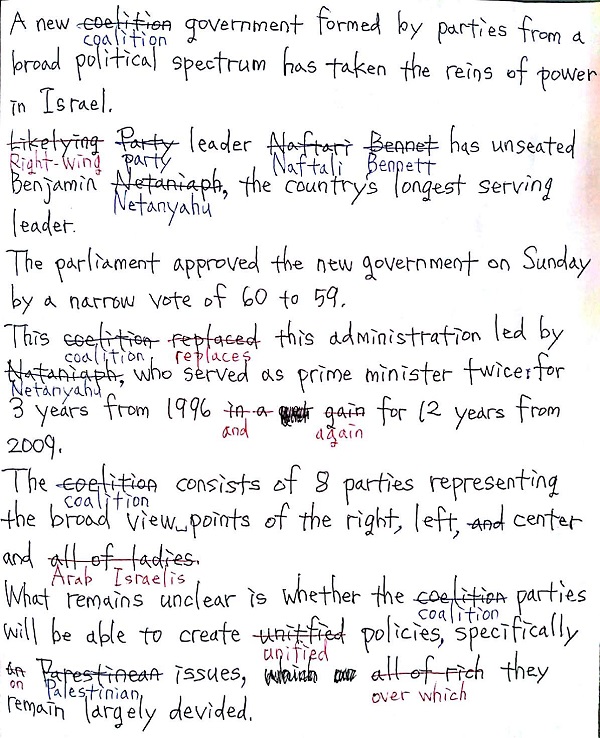 A new coelition government formed by parties from a
coalition
broad political spectrum has taken the reins of power
in Israel.
Likelying Party leader Naftari Bennet has unseated
Right-wing party Naftali Bennett
Benjamin Netaniaph, the country's longest serving
Netanyahu
leader.
The parliament approved the new government on Sunday
by a narrow vote of 60 to 59.
This coelition replaced this administration led by
coalition replaces
Nataniaph, who served as prime minister twice:for
Netanyahu
3 years from 1996 in a gain for 12 years from
and again
2009.
The coelition consists of 8 parties representing
coalition
the broad view points of the right, left, and center
and all of ladies.
Arab Israelis
What remains unclear is whether the coelition parties
coalition
will be able to create unitfied policies, specifically
unified
in Parestinean issues, which all of rich they
on Palestinian, over which
remain largely devided.